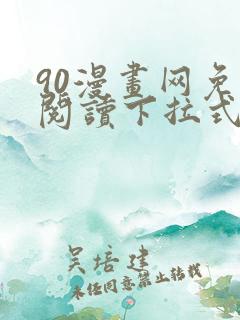 90漫畫网免
閱讀下拉式
吴培建
未经同意禁止转载